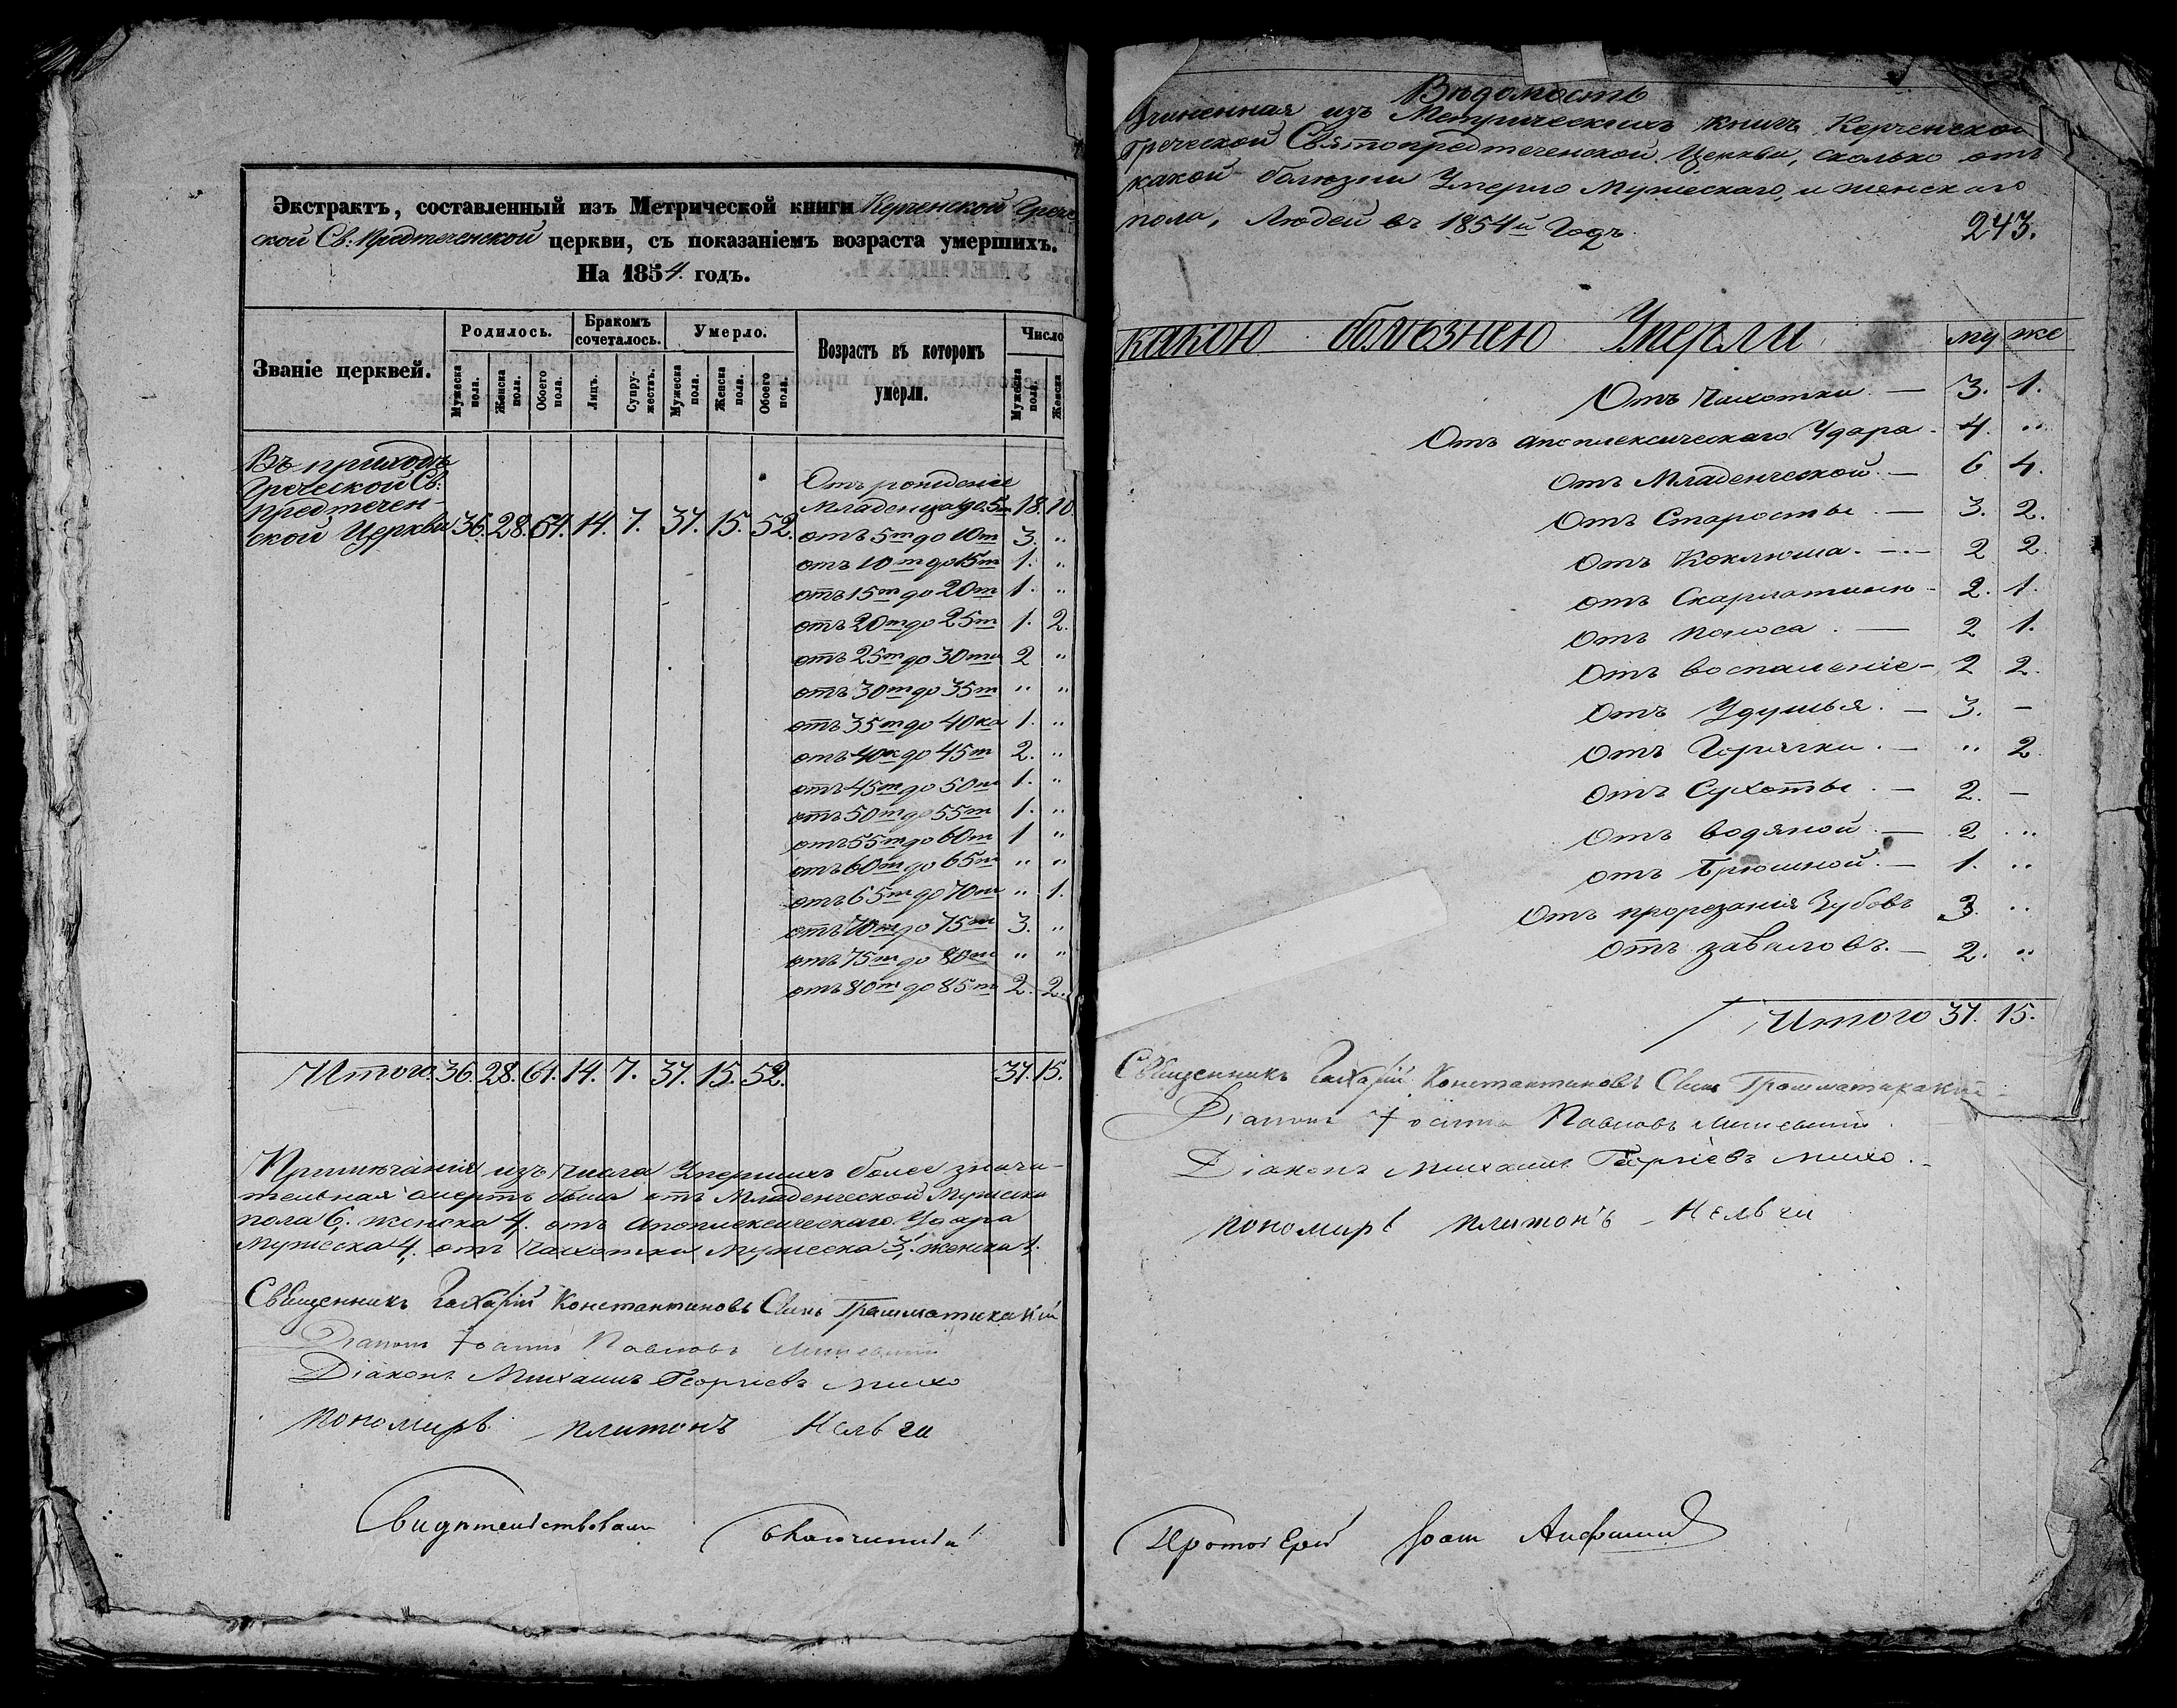 Экстрактъ, составленный изъ Метрической книги Керченской Грече
ской Св: Предтеченской церкви, съ показаніемъ возраста умершихъ.
На 1854. годъ.
Званіе церквей.
Родилось.
Бракомъ сочеталось.
Умерло.
Возрастъ въ которомъ умерли.
Число
Мужеска пола.
Женска пола.
Обоего пола.
Лицъ.
Супружествъ.
Мужеска пола.
Женска пола.
Обоего пола.
Мужеска пола.
Женска
Въ приходѣ
Греческой Св:
Предтечен-
ской Церкви 36. 28. 64. 14. 7. 37. 15. 52.
Отъ рожденіе
Младенца до 5т 18. 10
отъ 5т до 10т 3. "
отъ 10т до 15т 1. "
отъ 15т до 20т 1. "
отъ 20т до 25т 1. 2.
отъ 25т до 30ти 2 "
отъ 30т до 35т " "
отъ 35т до 40ка 1. "
отъ 40ка до 45т 2. "
отъ 45т до 50т 1. "
отъ 50т до 55т 1. "
отъ 55т до 60т 1 "
отъ 60т до 65т " "
отъ 65т до 70т " 1.
отъ 70т до 75т 3. "
отъ 75т до 80т " "
отъ 80т до 85т 2. 2.
Итого. 36. 28. 64. 14. 7. 37. 15. 52. 37. 15.
Примѣчанія изъ числа Умершихъ более значи-
тельная смерть была отъ Младенческой Мужеска
пола 6, женска 4. отъ Апоплексическаго Удара
Мужеска 4, отъ Чахотки Мужеска 3, женска 1.
Священникъ Захарій Константиновъ Сынъ Грамматикакій
Діаконъ Іоаннъ Павловъ
Діаконъ Михаилъ Георгіевъ Михо
пономарь Платонъ
Свидѣтельствовалъ благочинный
Вѣдомость
Учиненная изъ Метрическихъ книгъ Керченской
Греческой Святопредтеченской Церкви, сколько отъ
какой болюзни Умерло Мужескаго, и женскаго
пола, Людей въ 1854й Годъ.
243.
какою болѣзнею Умерли му же
Отъ Чахотки. — 3. 1.
Отъ апоплексическаго Удара - 4. "
отъ Младенческой. — 6 4.
Отъ Старосты. — 3. 2.
Отъ Коклюша. — 2 2.
отъ Скарлатины - 2. 1.
отъ Поноса. — 2 1.
Отъ воспаленіе - 2 2.
Отъ Удушья. — 3. —
отъ Горячки. — " 2.
отъ Сухоты. — 2. —
отъ водяной. — 2 "
отъ Брюшной. — 1. "
Отъ прорезанія Зубовъ 3. "
Отъ заваловъ. — 2. "
Итого 37. 15.
Священникъ Захарій Константиновъ Сынъ Грамматикакій
Діаконъ Іоаннъ Павловъ
Діаконъ Михаилъ Георгіевъ Михо.
пономарь Платонъ
Протоіерей Іоаннъ